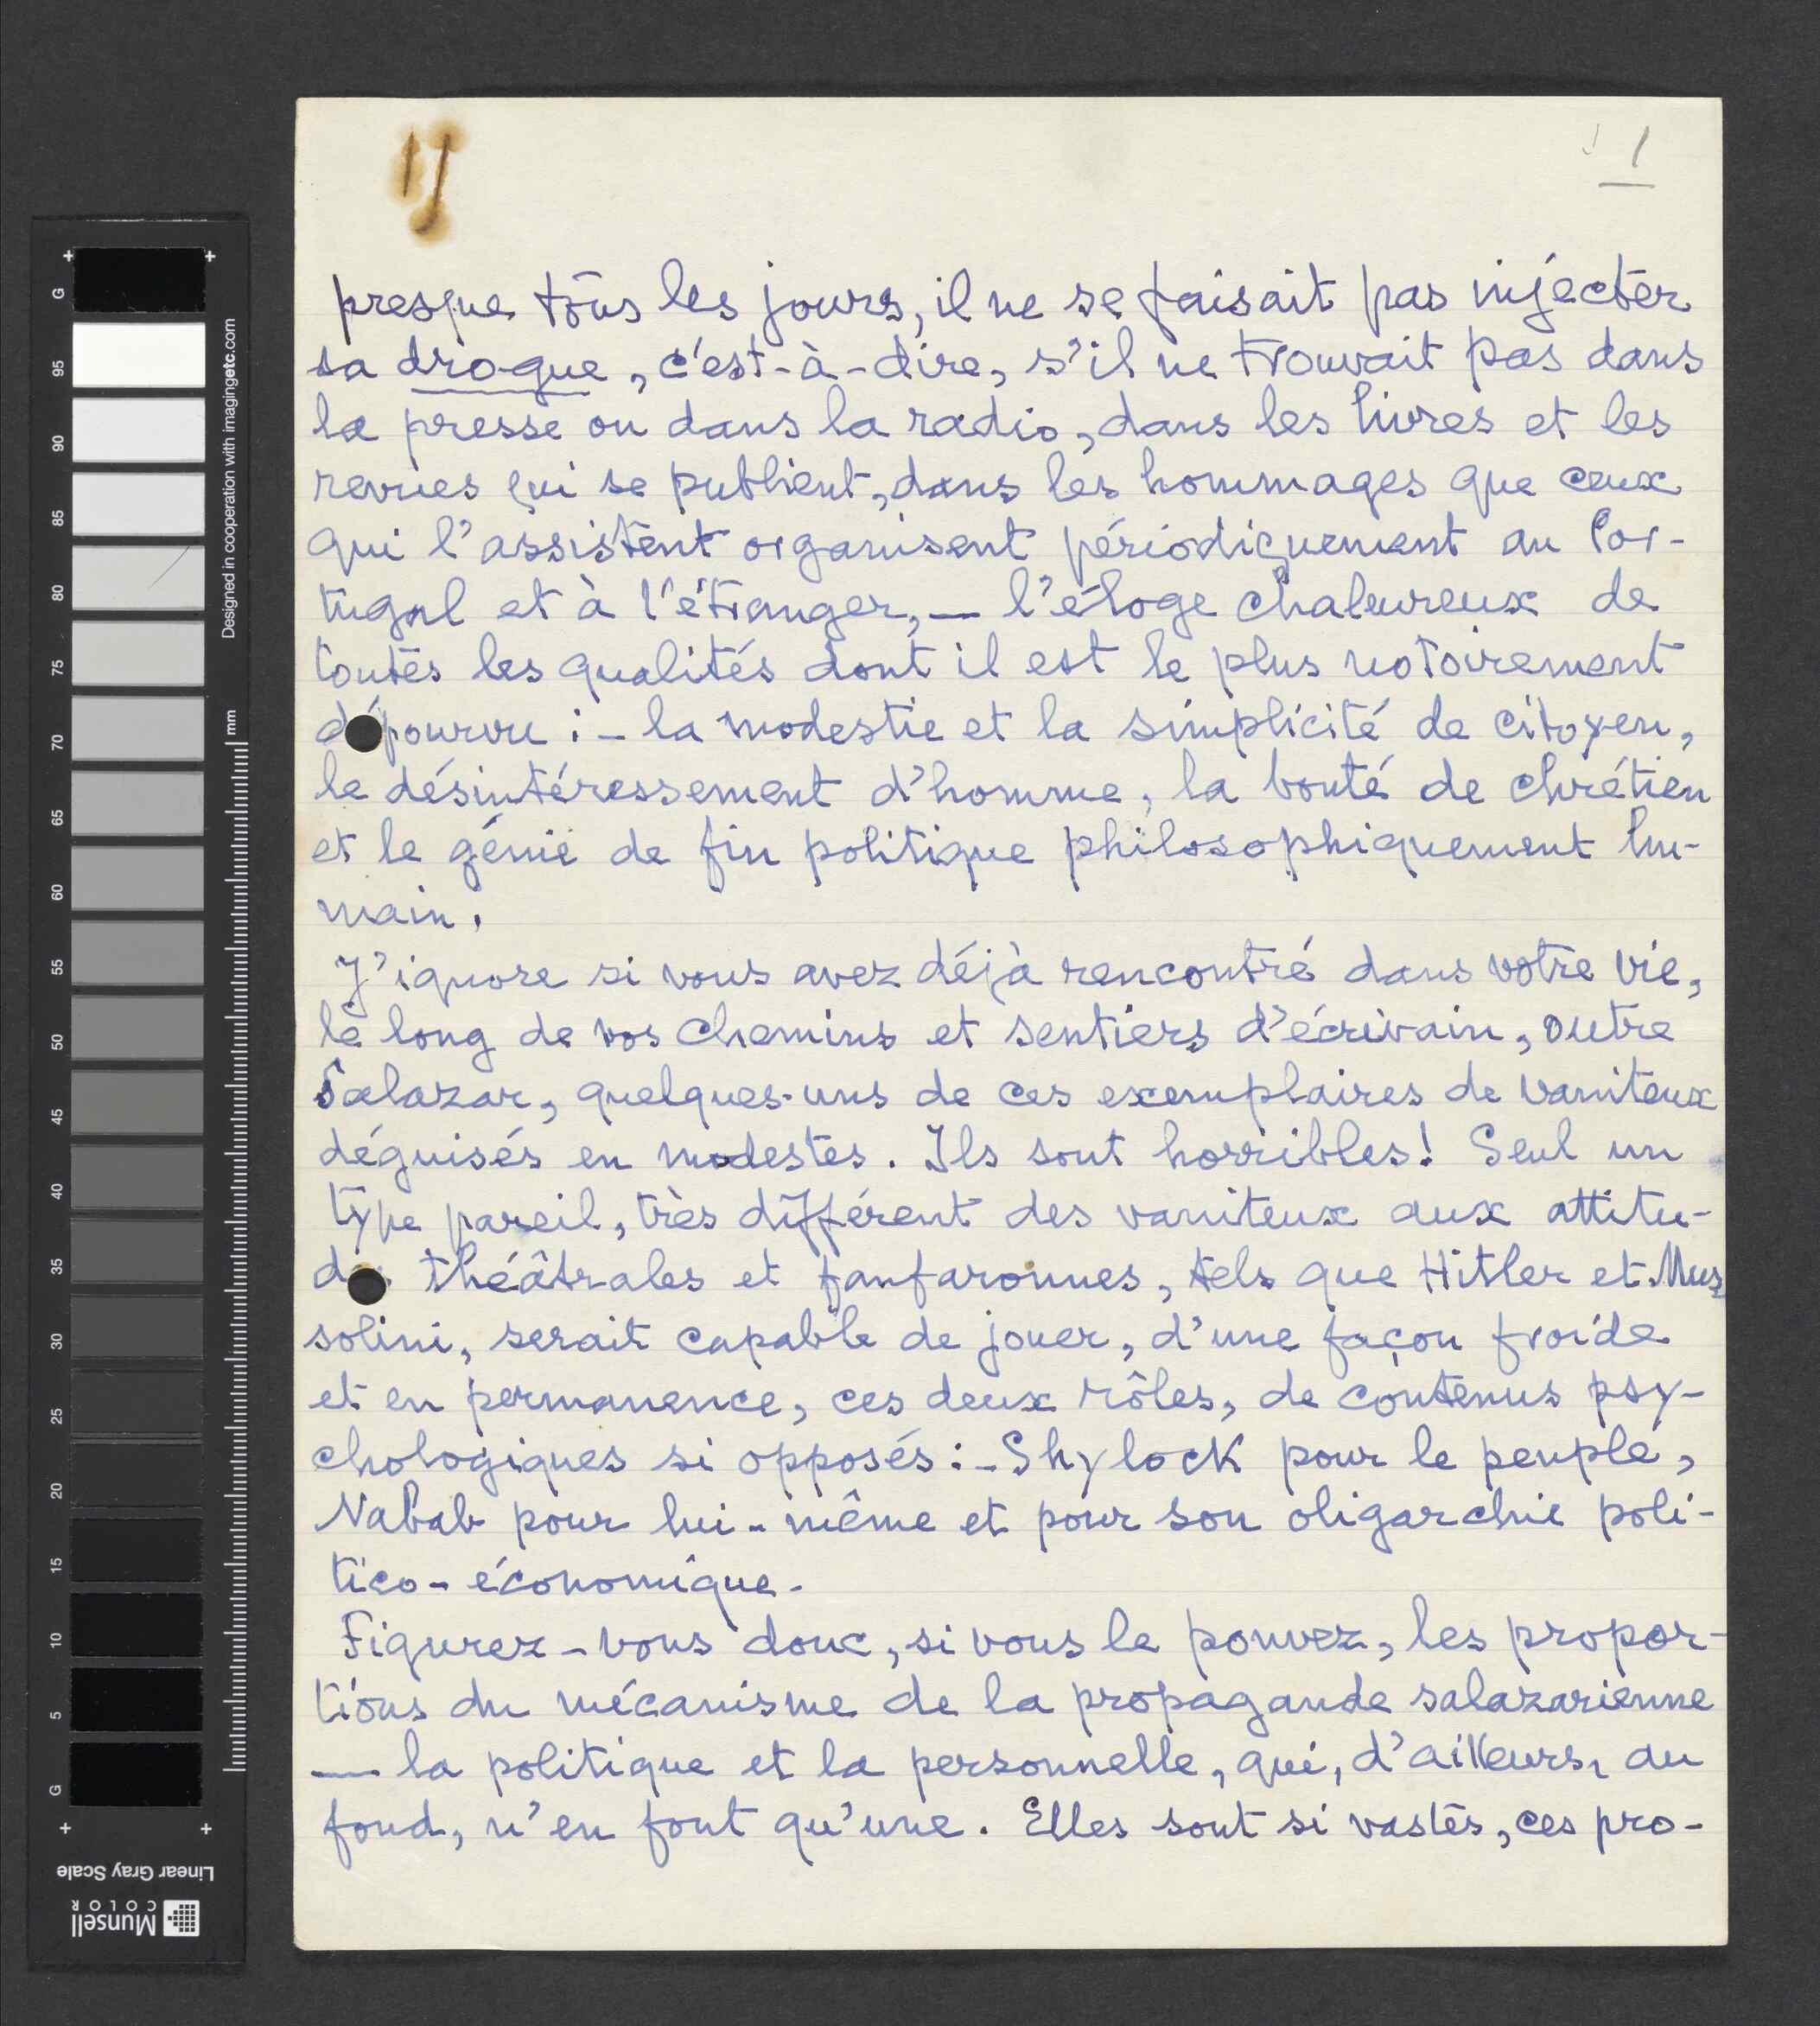 1
presque tous les jours, il ne se faisait pas injecter
sa drogue, c'est-à-dire, s'il ne trouvait pas dans
la presse ou dans la radio, dans les livres et les
revues qui se publient, dans les hommages que ceux
qui l'assistent organisent périodiquement au Por-
tugal et à l'étranger, — l'éloge chaleureux de
toutes les qualités dont il est le plus notoirement
dépourvu : - la modestie et la simplicité de citoyen,
le désintéressement d'homme, la bonté de chrétien
et le génie de fin politique philosophiquement hu-
main.
J'ignore si vous avez déjà rencontré dans votre vie,
le long de vos chemins et sentiers d'écrivain, outre
Salazar, quelques-uns de ces exemplaires de vaniteux
déguisés en modestes. Ils sont horribles! Seul un
type pareil, très différent des vaniteux aux attitu-
des théâtrales et fanfaronnes, tels que Hitler et Mus
solini, serait capable de jouer, d'une façon froide
et en permanence, ces deux rôles, de contenus psy-
chologiques si opposés : - Shylock pour le peuple,
Nabab pour lui-même et pour son oligarchie poli-
tico-économique.
Figurez-vous donc, si vous le pouvez, les propor-
tions du mécanisme de la propagande salazarienne
— la politique et la personnelle, qui, d'ailleurs, au
fond, n'en font qu'une. Elles sont si vastes, ces pro-
G
95
90
85
80
75
70
65
60
55
50
45
40
35
30
25
20
15
10
5
G
mm
Designed in cooperation with imagingetc.com
Linear Gray Scale
Munsell
COLOR